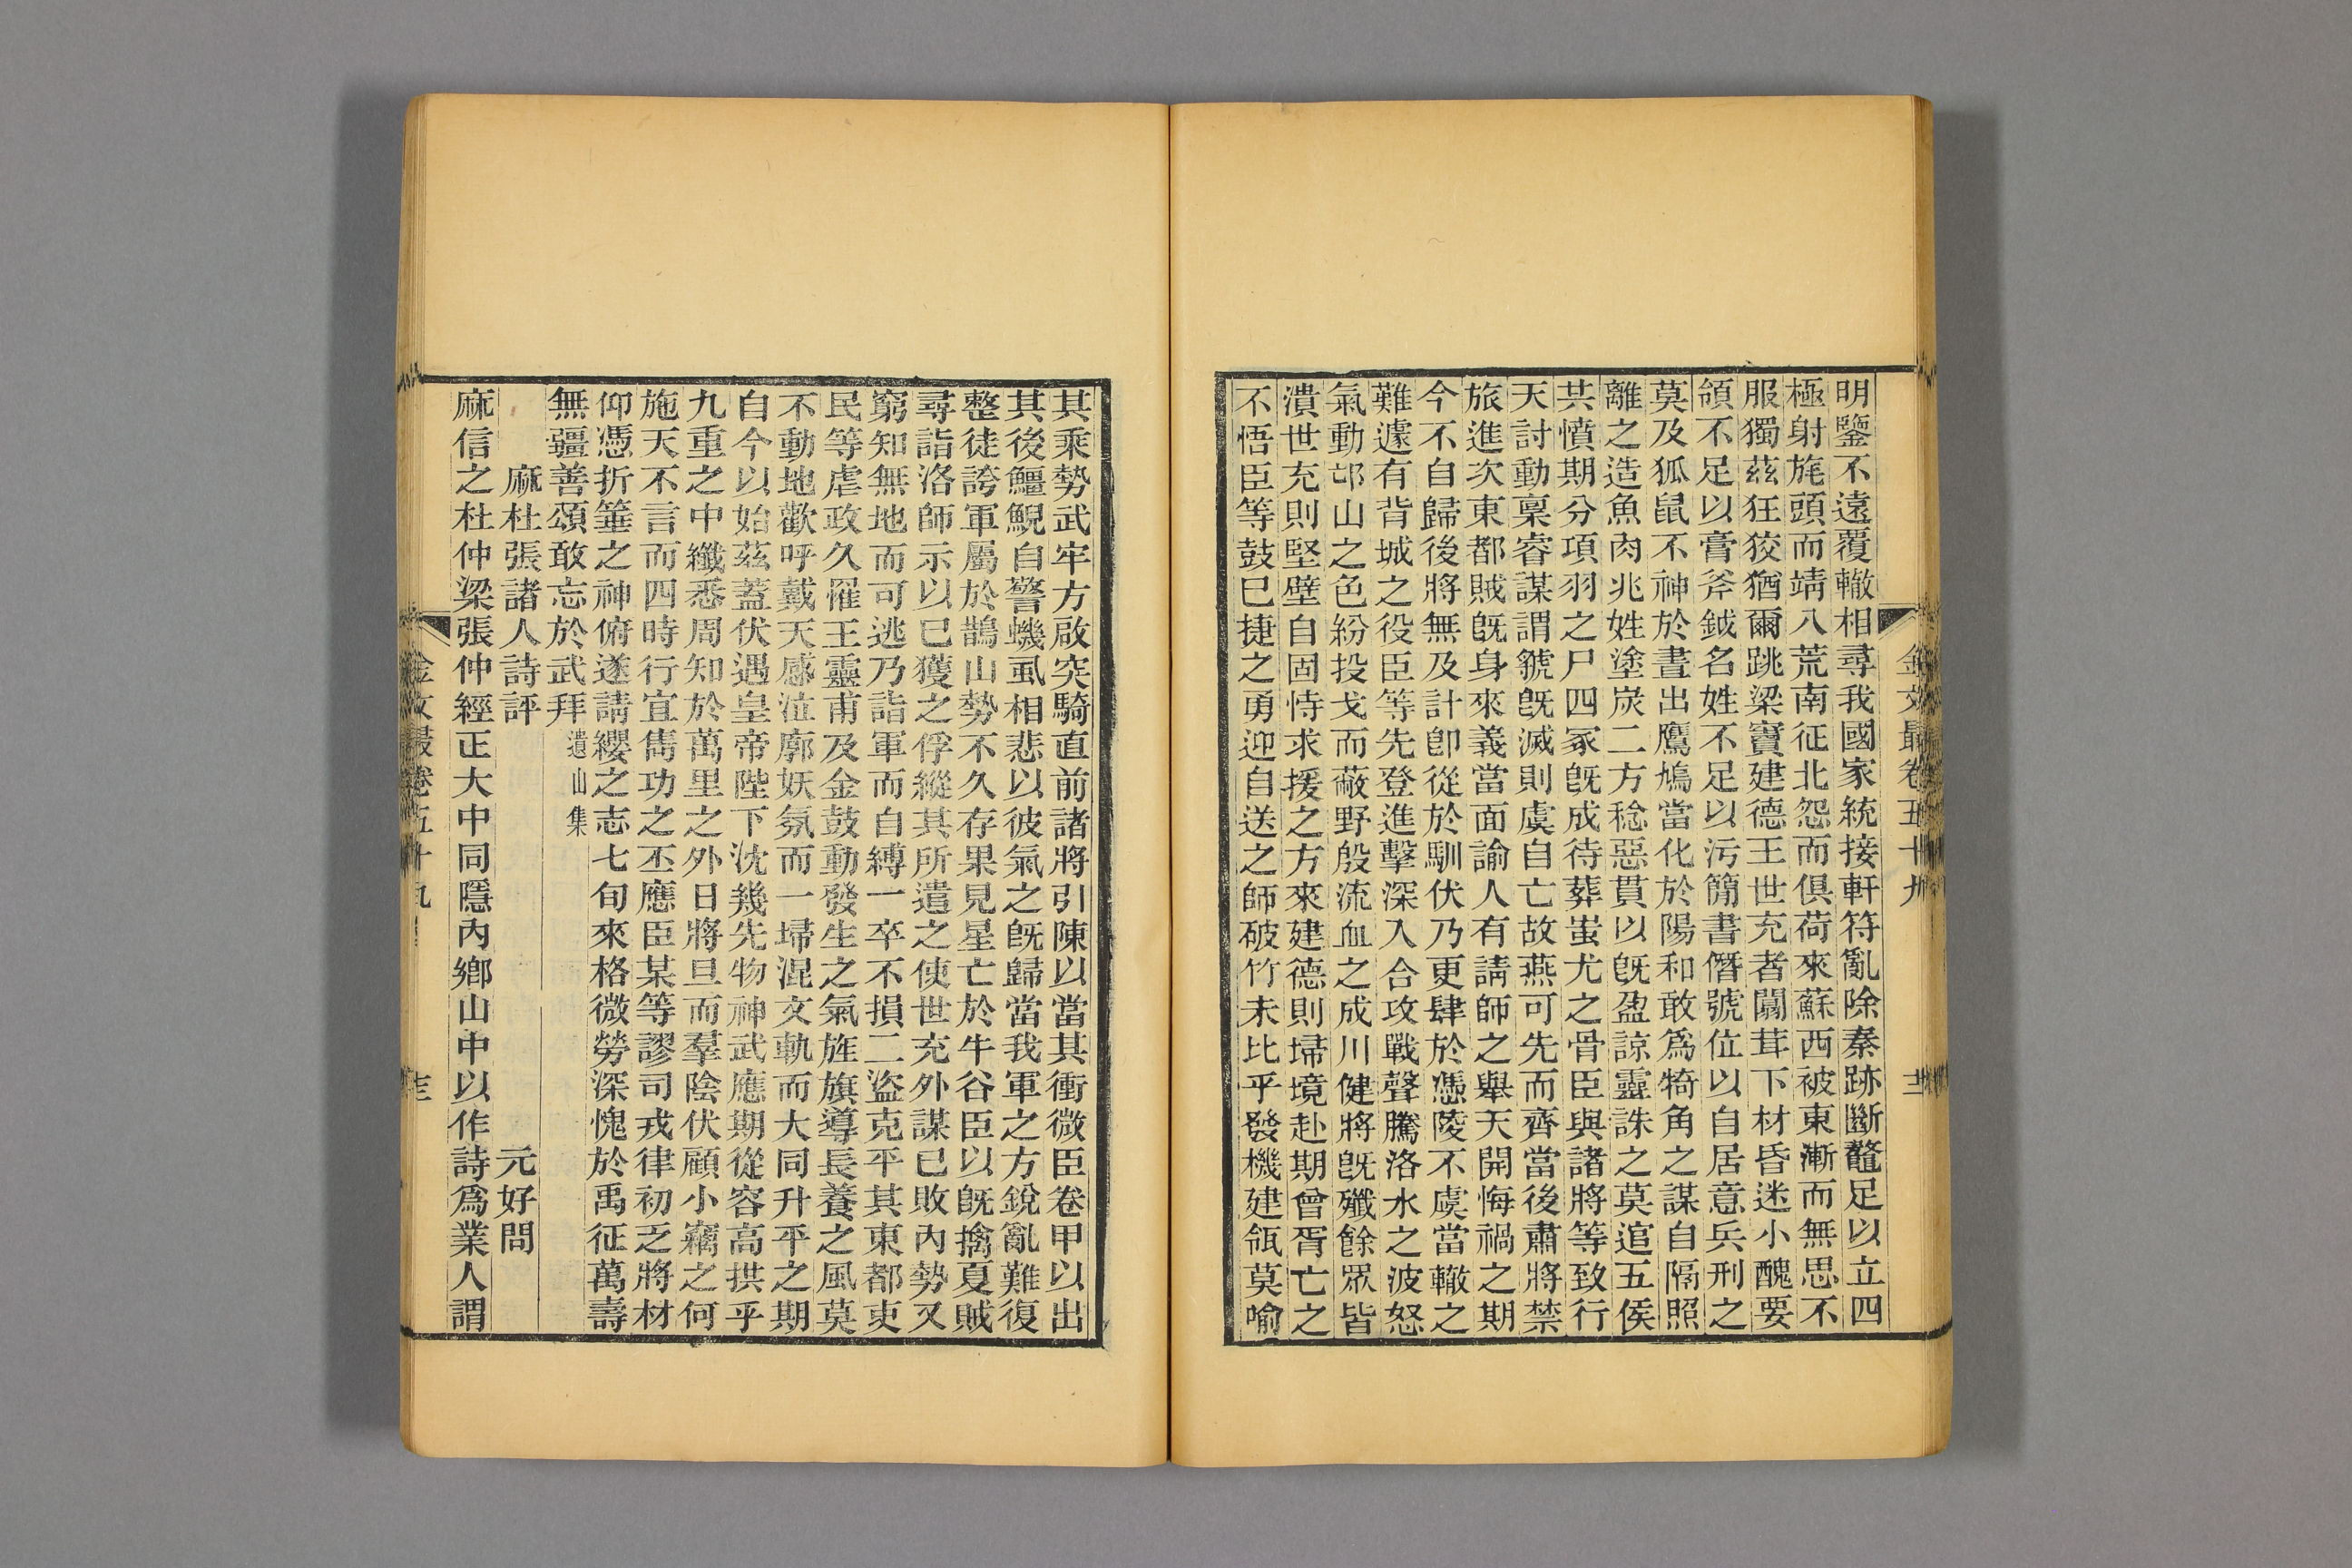 金文最卷五十九
十二
明鑒不遠覆轍相尋我國家統接軒符亂除秦跡斷鼇足以立四
極射旄頭而靖八荒南征北怨而俱荷來蘇西被東漸而無思不
服獨茲狂狡猶爾跳梁竇建德王世充者闒茸下材昏迷小醜要
領不足以膏斧鉞名姓不足以污簡書僭號位以自居意兵刑之
莫及狐鼠不神於晝出鷹鳩當化於陽和敢爲犄角之謀自隔照
離之造魚肉兆姓塗炭二方稔惡貫以旣盈諒靈誅之莫逭五侯
共憤期分項羽之尸四冢旣成待葬蚩尤之骨臣與諸將等致行
天討動稟睿謀謂虢旣滅則虞自亡故燕可先而齊當後肅將禁
旅進次東都賊旣身來義當面諭人有請師之舉天開悔禍之期
今不自歸後將無及計卽從於馴伏乃更肆於憑陵不虞當轍之
難遽有背城之役臣等先登進擊深入合攻戰聲騰洛水之波怒
氣動邙山之色紛投戈而蔽野殷流血之成川健將旣殲餘眾皆
潰世充則堅壁自固恃求援之方來建德則埽境赴期曾胥亡之
不悟臣等鼓已捷之勇迎自送之師破竹未比乎發機建瓴莫喻
其乘勢武牢方啟突騎直前諸將引陳以當其衝微臣卷甲以出
其後鱷鯢自警蟣虱相悲以彼氣之旣歸當我軍之方銳亂難復
整徒誇軍屬於鵲山勢不久存果見星亡於牛谷臣以旣擒夏賊
尋詣洛師示以已獲之俘縱其所遣之使世充外謀已敗內勢又
窮知無地而可逃乃詣軍而自縛一卒不損二盜克平其東都吏
民等虐政久罹王靈甫及金鼓動發生之氣旌旗導長養之風莫
不動地歡呼戴天感泣廓妖氛而一埽混文軌而大同升平之期
自今以始茲蓋伏遇皇帝陛下沈幾先物神武應期從容高拱乎
九重之中纖悉周知於萬里之外日將旦而羣陰伏顧小竊之何
施天不言而四時行宜雋功之丕應臣某等謬司戎律初乏將材
仰憑折箠之神俯遂請纓之志七旬來格微勞深愧於禹征萬壽
無疆善頌敢忘於武拜 遺山集
麻杜張諸人詩評 元好問
麻信之杜仲梁張仲經正大中同隱內鄉山中以作詩爲業人謂
金文最卷五十九
十三